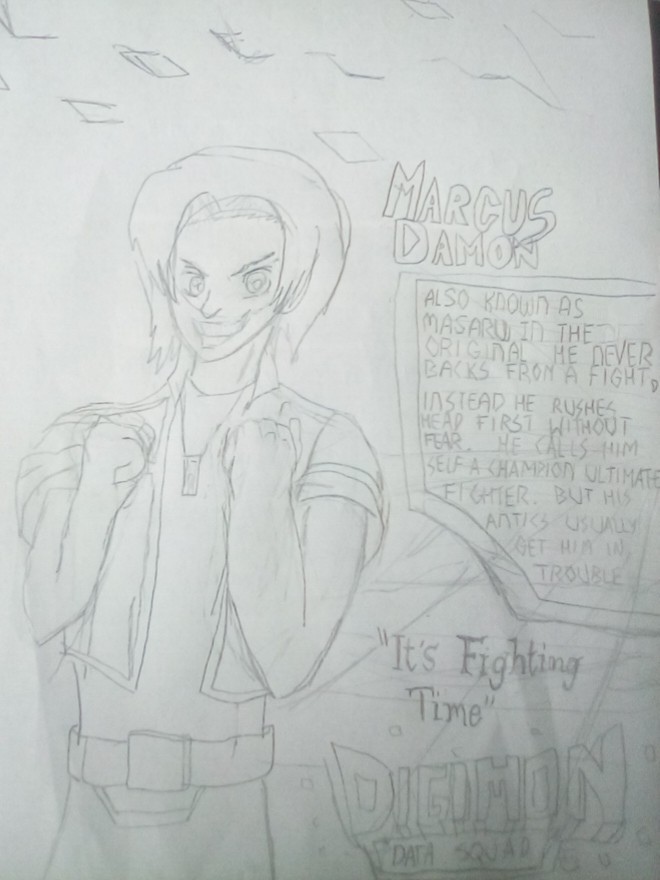 MARCUS
DAMON
ALSO KNOWN AS
MASARU IN THE
ORIGINAL HE NEVER
BACKS FROM A FIGHT,
INSTEAD HE RUSHES
HEAD FIRST WITHOUT
FEAR. HE CALLS HIM
SELF A CHAMPION ULTIMATE
FIGHTER. BUT HIS
ANTICS USUALLY
GET HIM IN
TROUBLE
"It's Fighting
Time"
DIGIMON
DATA SQUAD